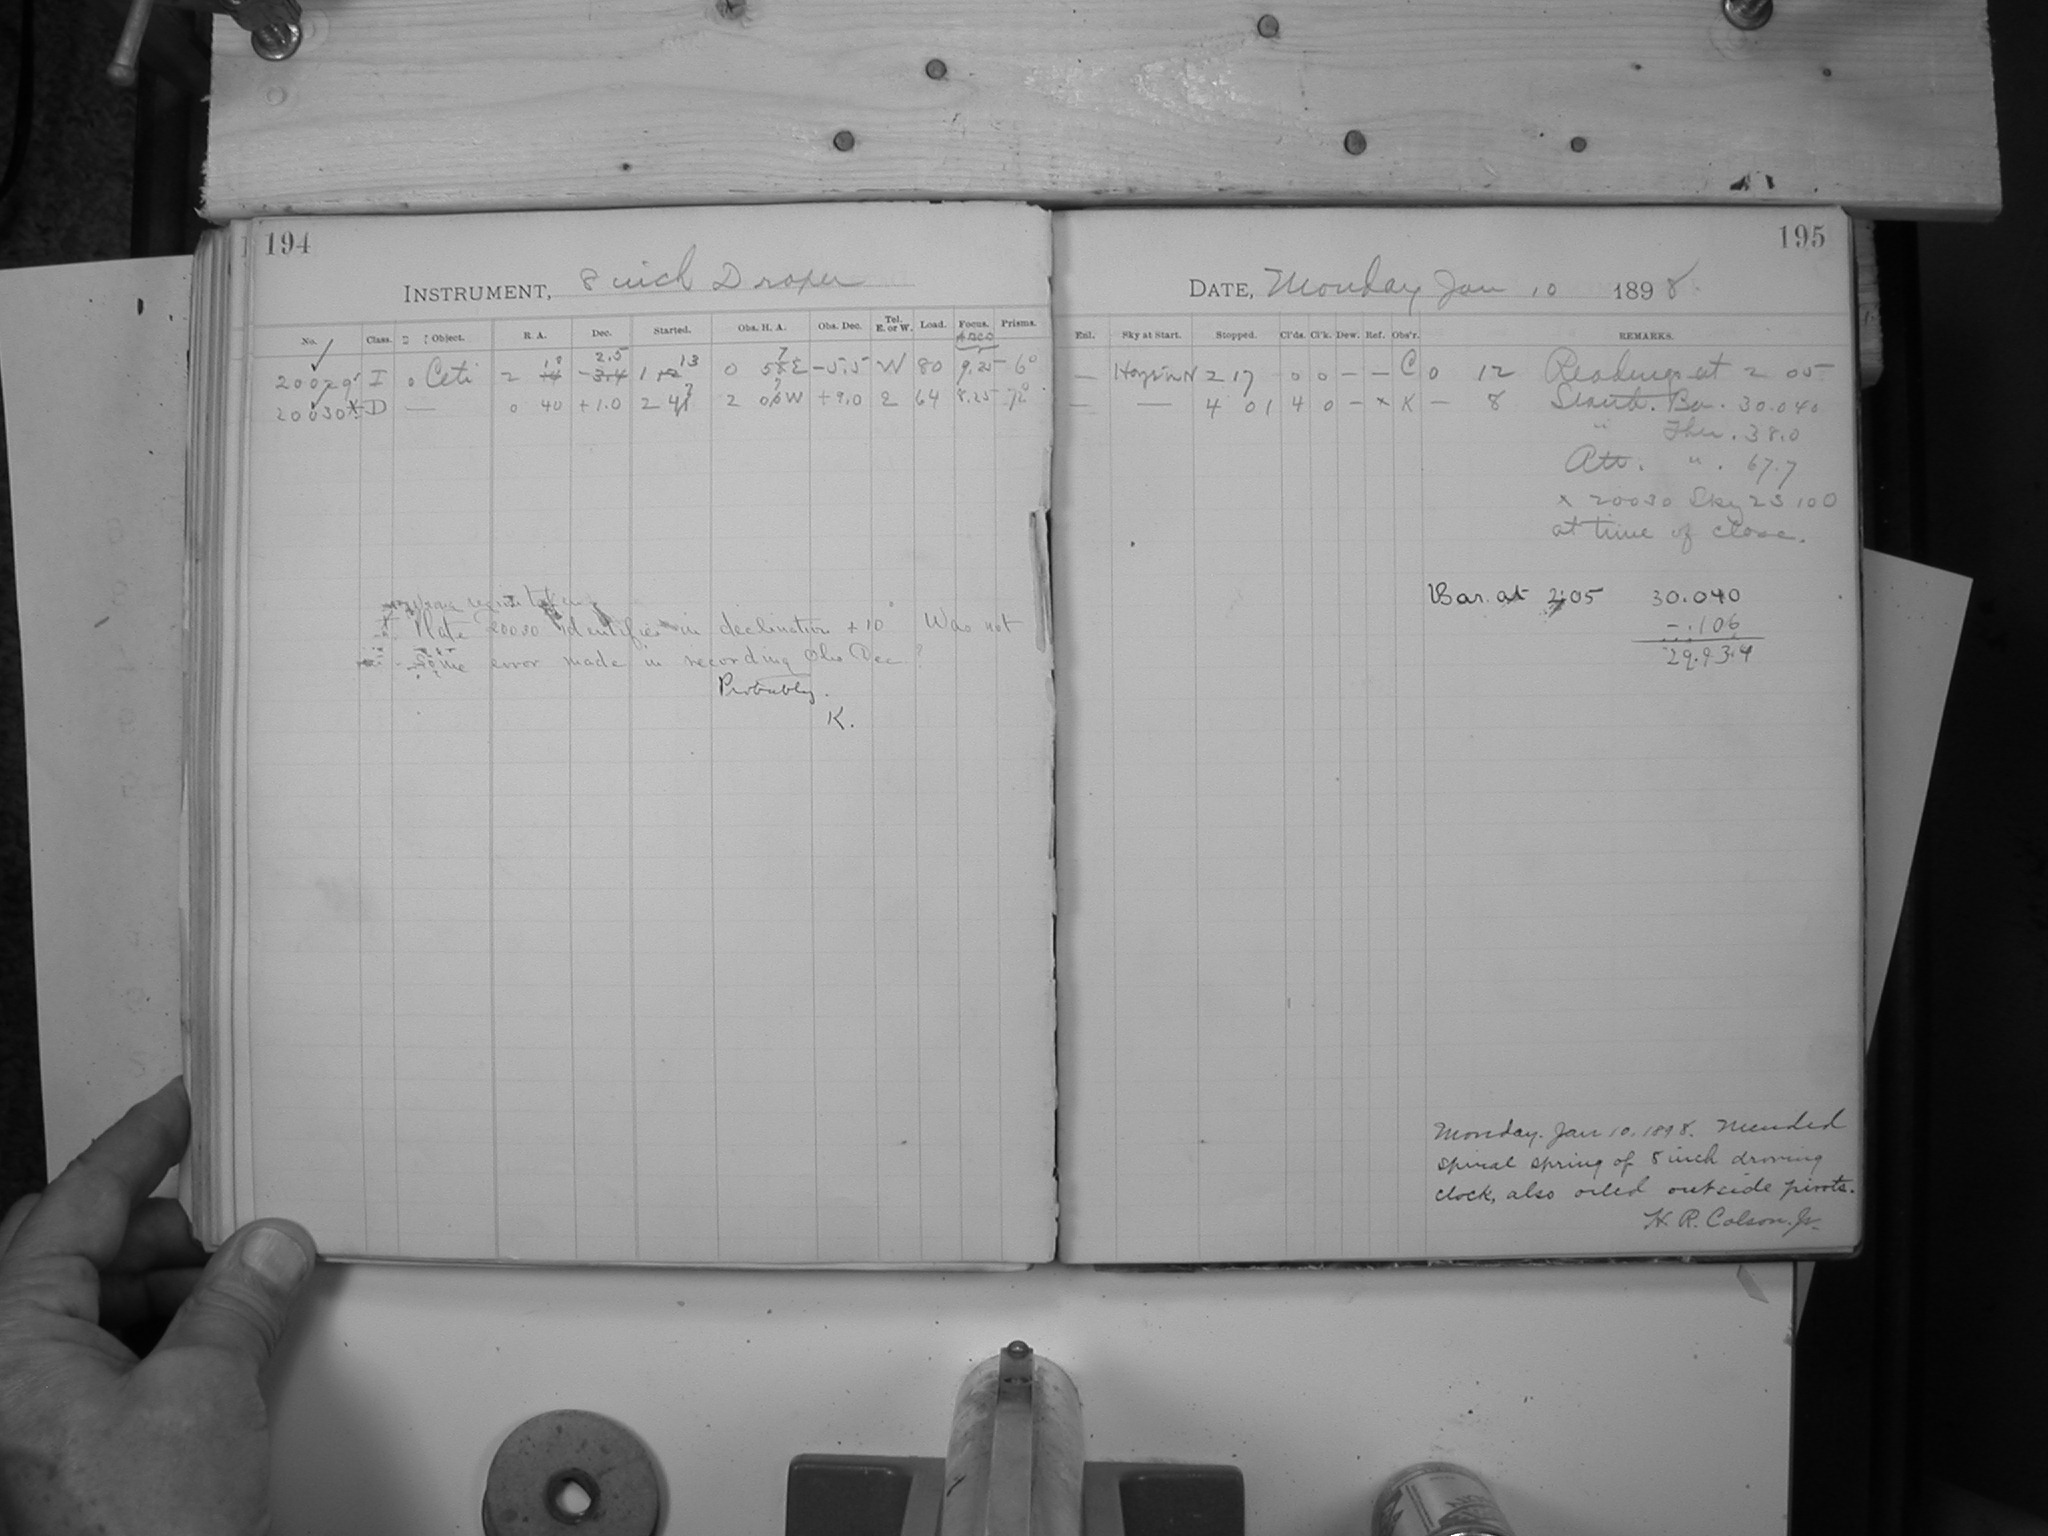 194
INSTRUMENT, 8 inch Draper
No. Class. Object. R. A. Dec. Started. Obs. H. A. Obs. Dec. Tel. E. or W. Load. Focus. Prisms.
20029 I o Ceti 2 14 18 -3.4 2.5 1 12 13 0 58 7 E -5.5 W 80 9.25 6°
20030 X D — 0 40 +1.0 2 41 2 W +9.0 E 64 8.25
wrong region taken
Plate 20030 identifies in declination +10° Was not
some error made in recording Obs Dec ?
Probably.
K.
195
DATE, Monday Jan 10 1898
Exl. Sky at Start. Stopped. Cl'ds. Cl'k. Dew. Ref. Obs'r. REMARKS.
— 2 17 0 0 — — C 0 12 Readings at 2 05
— — 4 01 4 0 — x K — 8 Stand. Bar. 30.040
" Ther. 38.0
Att. " . 67.7
x 20030 Sky 2S 100
at time of close.
Bar. at 2:05 30.040
-.106
29.934
Monday. Jan 10. 1898. Mended
spiral spring of 8 inch driving
clock, also oiled outside pivots.
H. R. Colson. Jr.